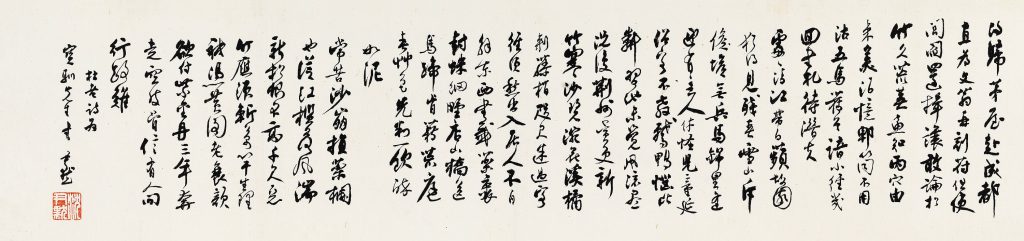 得歸茅屋赴成都
直為文翁再剖符但使
閭閻還揖讓敢論松
竹久荒蕪魚知丙穴由
來美酒憶郫筒不用
酤五馬舊曾諳小徑幾
回書札待潛夫
處處清江帶白蘋故園
猶得見殘春雪山斥
候無兵馬錦里逢
迎有主人休怪兒童延
俗客不教鵝鴨惱比
鄰習池未覺風流盡
況復荊州賞更新
竹寒沙碧浣花溪橘
刺藤梢咫尺迷過客
徑須愁出入居人不自
解東西書籤藥裹
封蛛網野店山橋送
馬蹄肯藉荒庭
春草色先判一飲醉
如泥
常苦沙崩損藥欄
也從江檻落風湍
新松恨不高千尺惡
竹應須斬萬竿生理
祇憑黃閣老衰顏
欲付紫金丹三年奔
走空皮骨信有人間
行路難
杜甫詩為
先生書